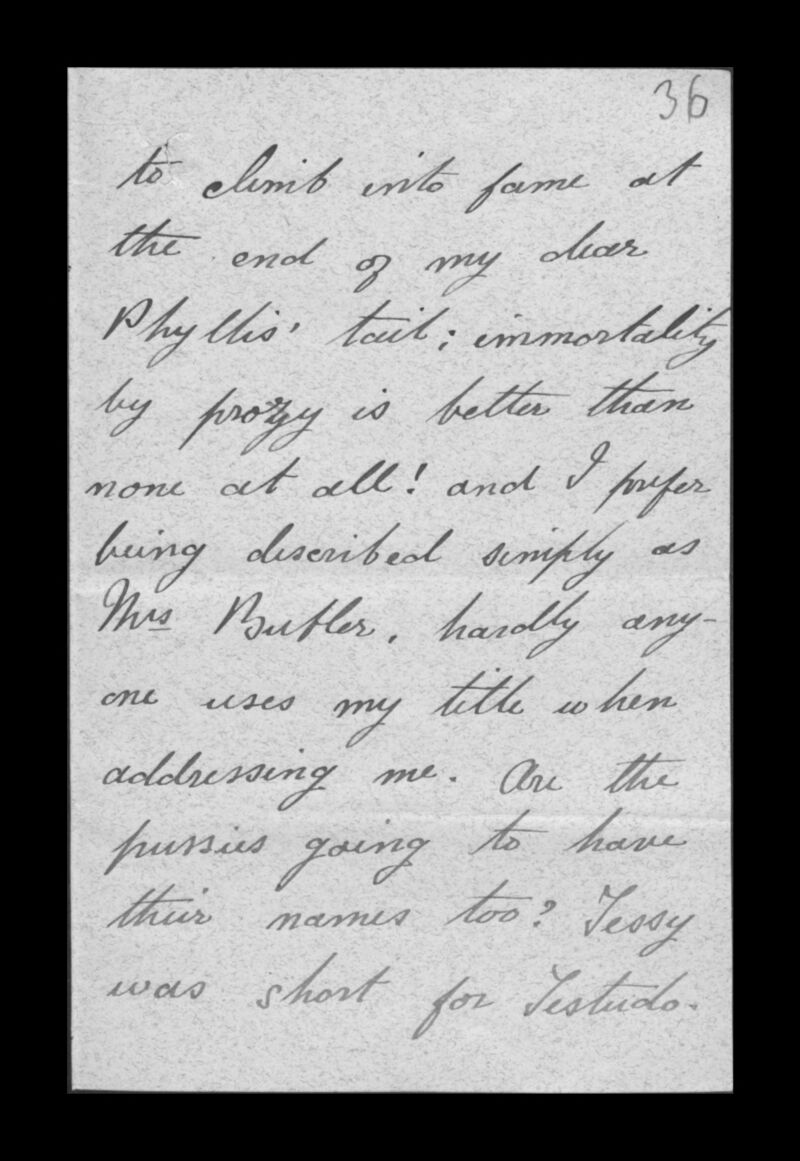 36
to climb into fame at
the end of my dear
Phyllis' tail; immortality
by proxy is better than
none at all! and I prefer
being described simply as
Mrs Butler, hardly any-
one uses my title when
addressing me. Are the
pussies going to have
their names too? Tessy
was short for Testudo.